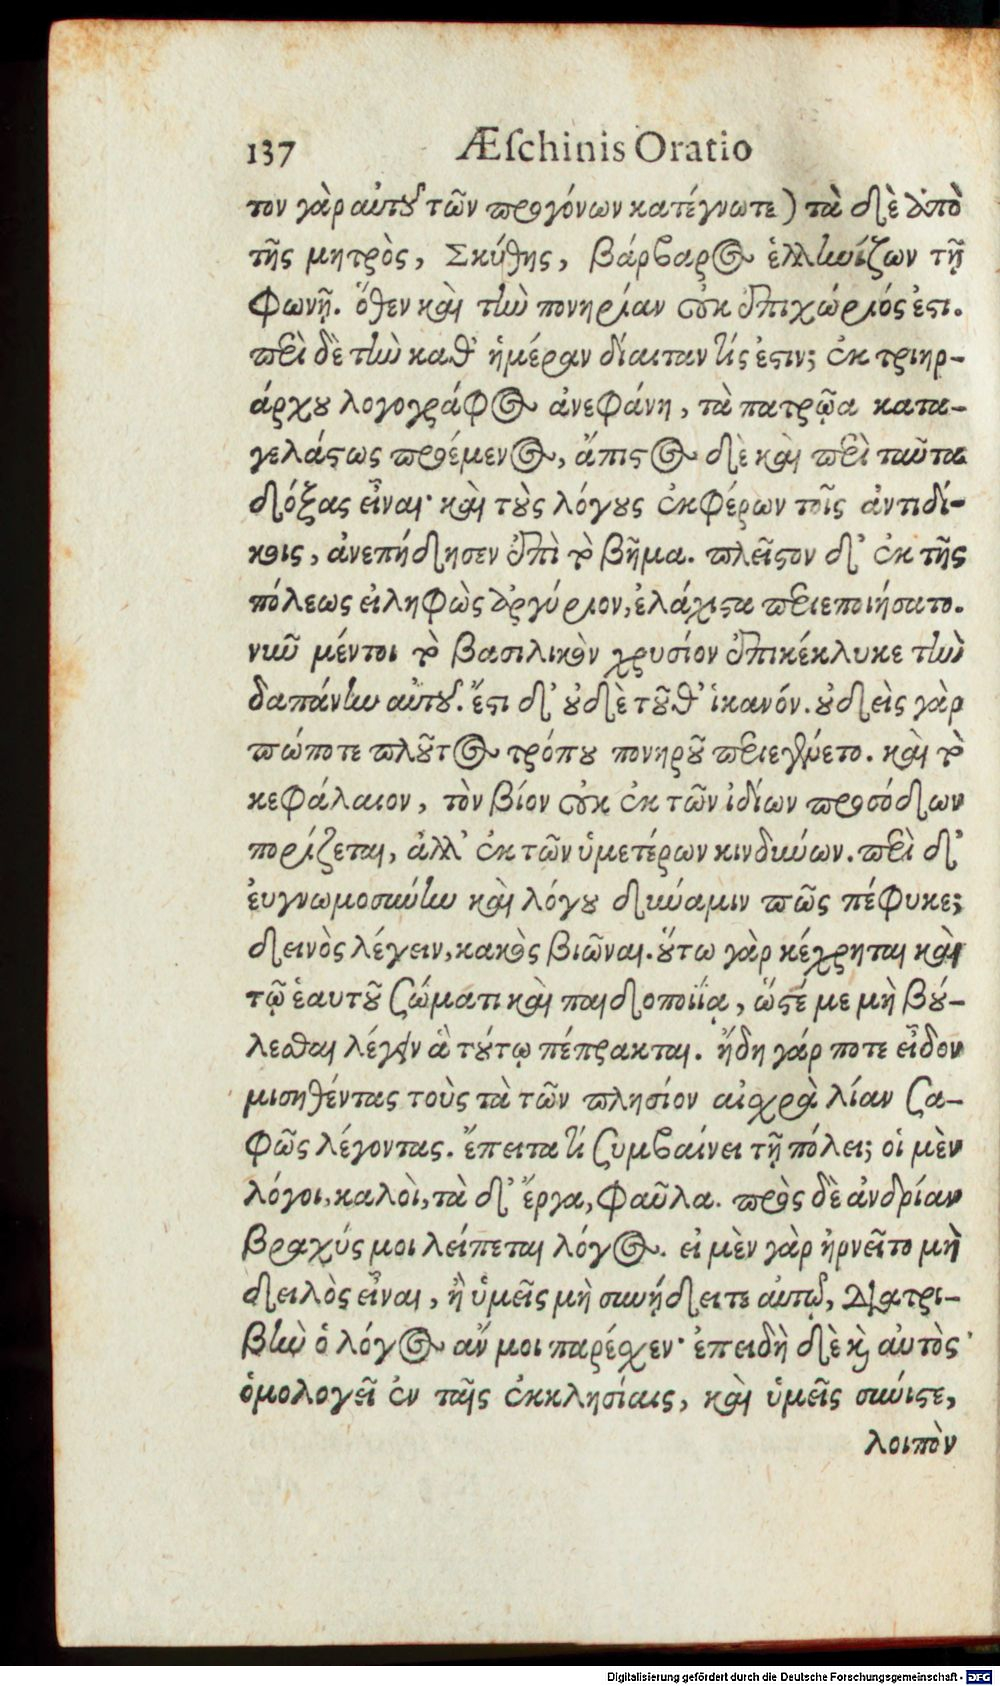 137 Æſchinis Oratio
τον γὰρ αὐτοῦ τῶν προγόνων κατέγνωτε) τὰ δὲ ἀπὸ
τῆς μητρὸς, Σκύθης, βάρβαρος ἑλληνίζων τῇ
φωνῇ. ὅθεν καὶ τὴν πονηρίαν οὐκ ἐπιχώριός ἐστι.
περὶ δὲ τὴν καθ' ἡμέραν δίαιταν τίς ἐστιν; ἐκ τριηρ-
άρχου λογογράφος ἀνεφάνη, τὰ πατρῷα κατα-
γελάστως προέμενος, ἄπιστος δὲ καὶ περὶ ταῦτα
δόξας εἶναι· καὶ τοὺς λόγους ἐκφέρων τοῖς ἀντιδί-
κοις, ἀνεπήδησεν ἐπὶ τὸ βῆμα. πλεῖστον δ' ἐκ τῆς
πόλεως εἰληφὼς ἀργύριον, ἐλάχιστα περιεποιήσατο.
νῦν μέντοι τὸ βασιλικὸν χρυσίον ἐπικέκλυκε τὴν
δαπάνην αὐτοῦ. ἔστι δ' οὐδὲ τοῦθ' ἱκανόν. οὐδεὶς γὰρ
πώποτε πλοῦτος τρόπου πονηροῦ περιεγένετο. καὶ τὸ
κεφάλαιον, τὸν βίον οὐκ ἐκ τῶν ἰδίων προσόδων
πορίζεται, ἀλλ' ἐκ τῶν ὑμετέρων κινδύνων. περὶ δ'
εὐγνωμοσύνην καὶ λόγου δύναμιν πῶς πέφυκε;
δεινὸς λέγειν, κακὸς βιῶναι. οὕτω γὰρ κέχρηται καὶ
τῷ ἑαυτοῦ σώματι καὶ παιδοποιΐᾳ, ὥστέ με μὴ βού-
λεσθαι λέγειν ἃ τούτῳ πέπρακται. ἤδη γάρ ποτε εἶδον
μισηθέντας τοὺς τὰ τῶν πλησίον αἰσχρὰ λίαν σα-
φῶς λέγοντας. ἔπειτα τί συμβαίνει τῇ πόλει; οἱ μὲν
λόγοι, καλοὶ, τὰ δ' ἔργα, φαῦλα. πρὸς δὲ ἀνδρίαν
βραχύς μοι λείπεται λόγος. εἰ μὲν γὰρ ἠρνεῖτο μὴ
δειλὸς εἶναι, ἢ ὑμεῖς μὴ συνῄδειτε αὐτῷ, διατρι-
βὴν ὁ λόγος ἄν μοι παρέσχεν· ἐπειδὴ δὲ καὶ αὐτὸς
ὁμολογεῖ ἐν ταῖς ἐκκλησίαις, καὶ ὑμεῖς σύνιστε,
λοιπὸν
Digitalisierung gefördert durch die Deutsche Forschungsgemeinschaft - DFG